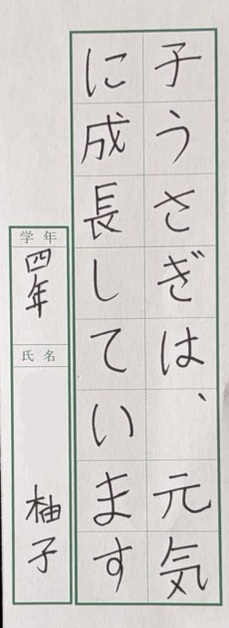 子うさぎは、元気
に成長しています
学年
四年
氏名
柚子